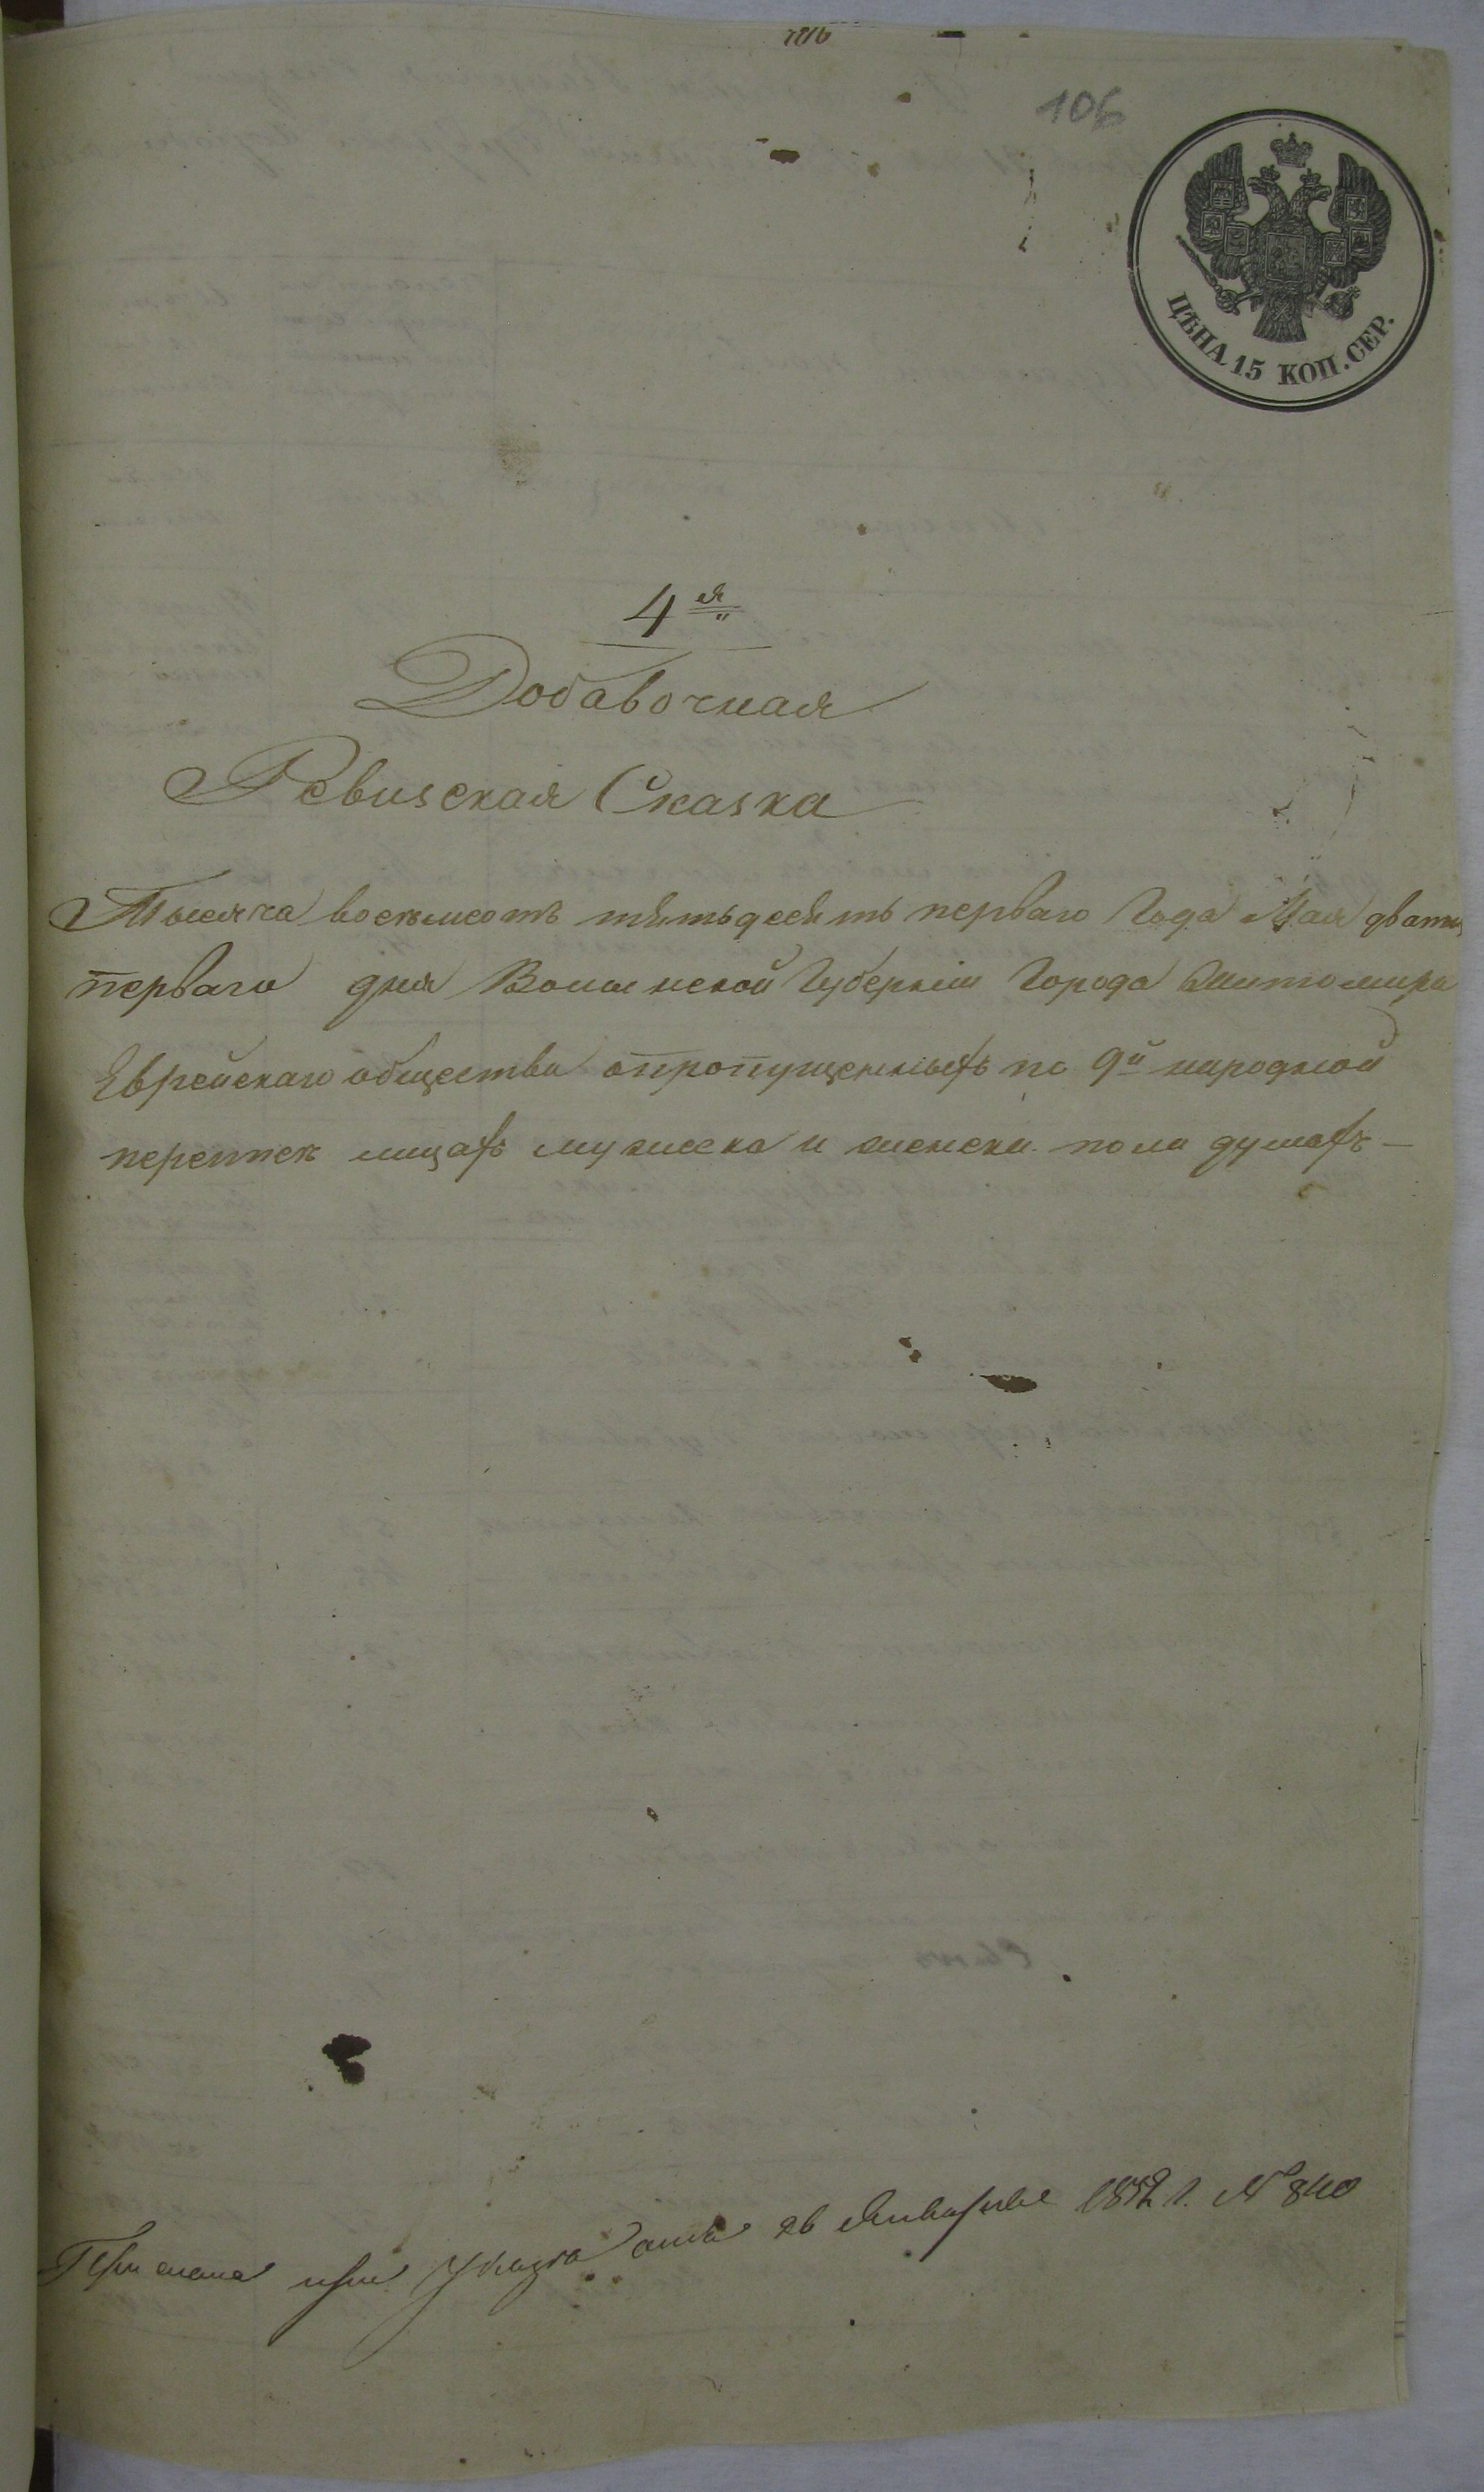 106
ЦѢНА 15 КОП. СЕР.
4я
Добавочная
Ревизская Сказка
Тысяча восемсотъ пятьдесятъ перваго Года Мая дватц
перваго дня Волынской Губерніи Города Житомира
Еврейскаго общества опропущенныхъ по 9й народной
переписи лицахъ мужеска и женска пола душахъ —
При указе отъ 26 Января 1852 г. № 840